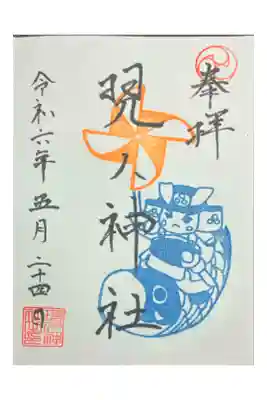 奉拝
現人神社
令和六年五月二十四日